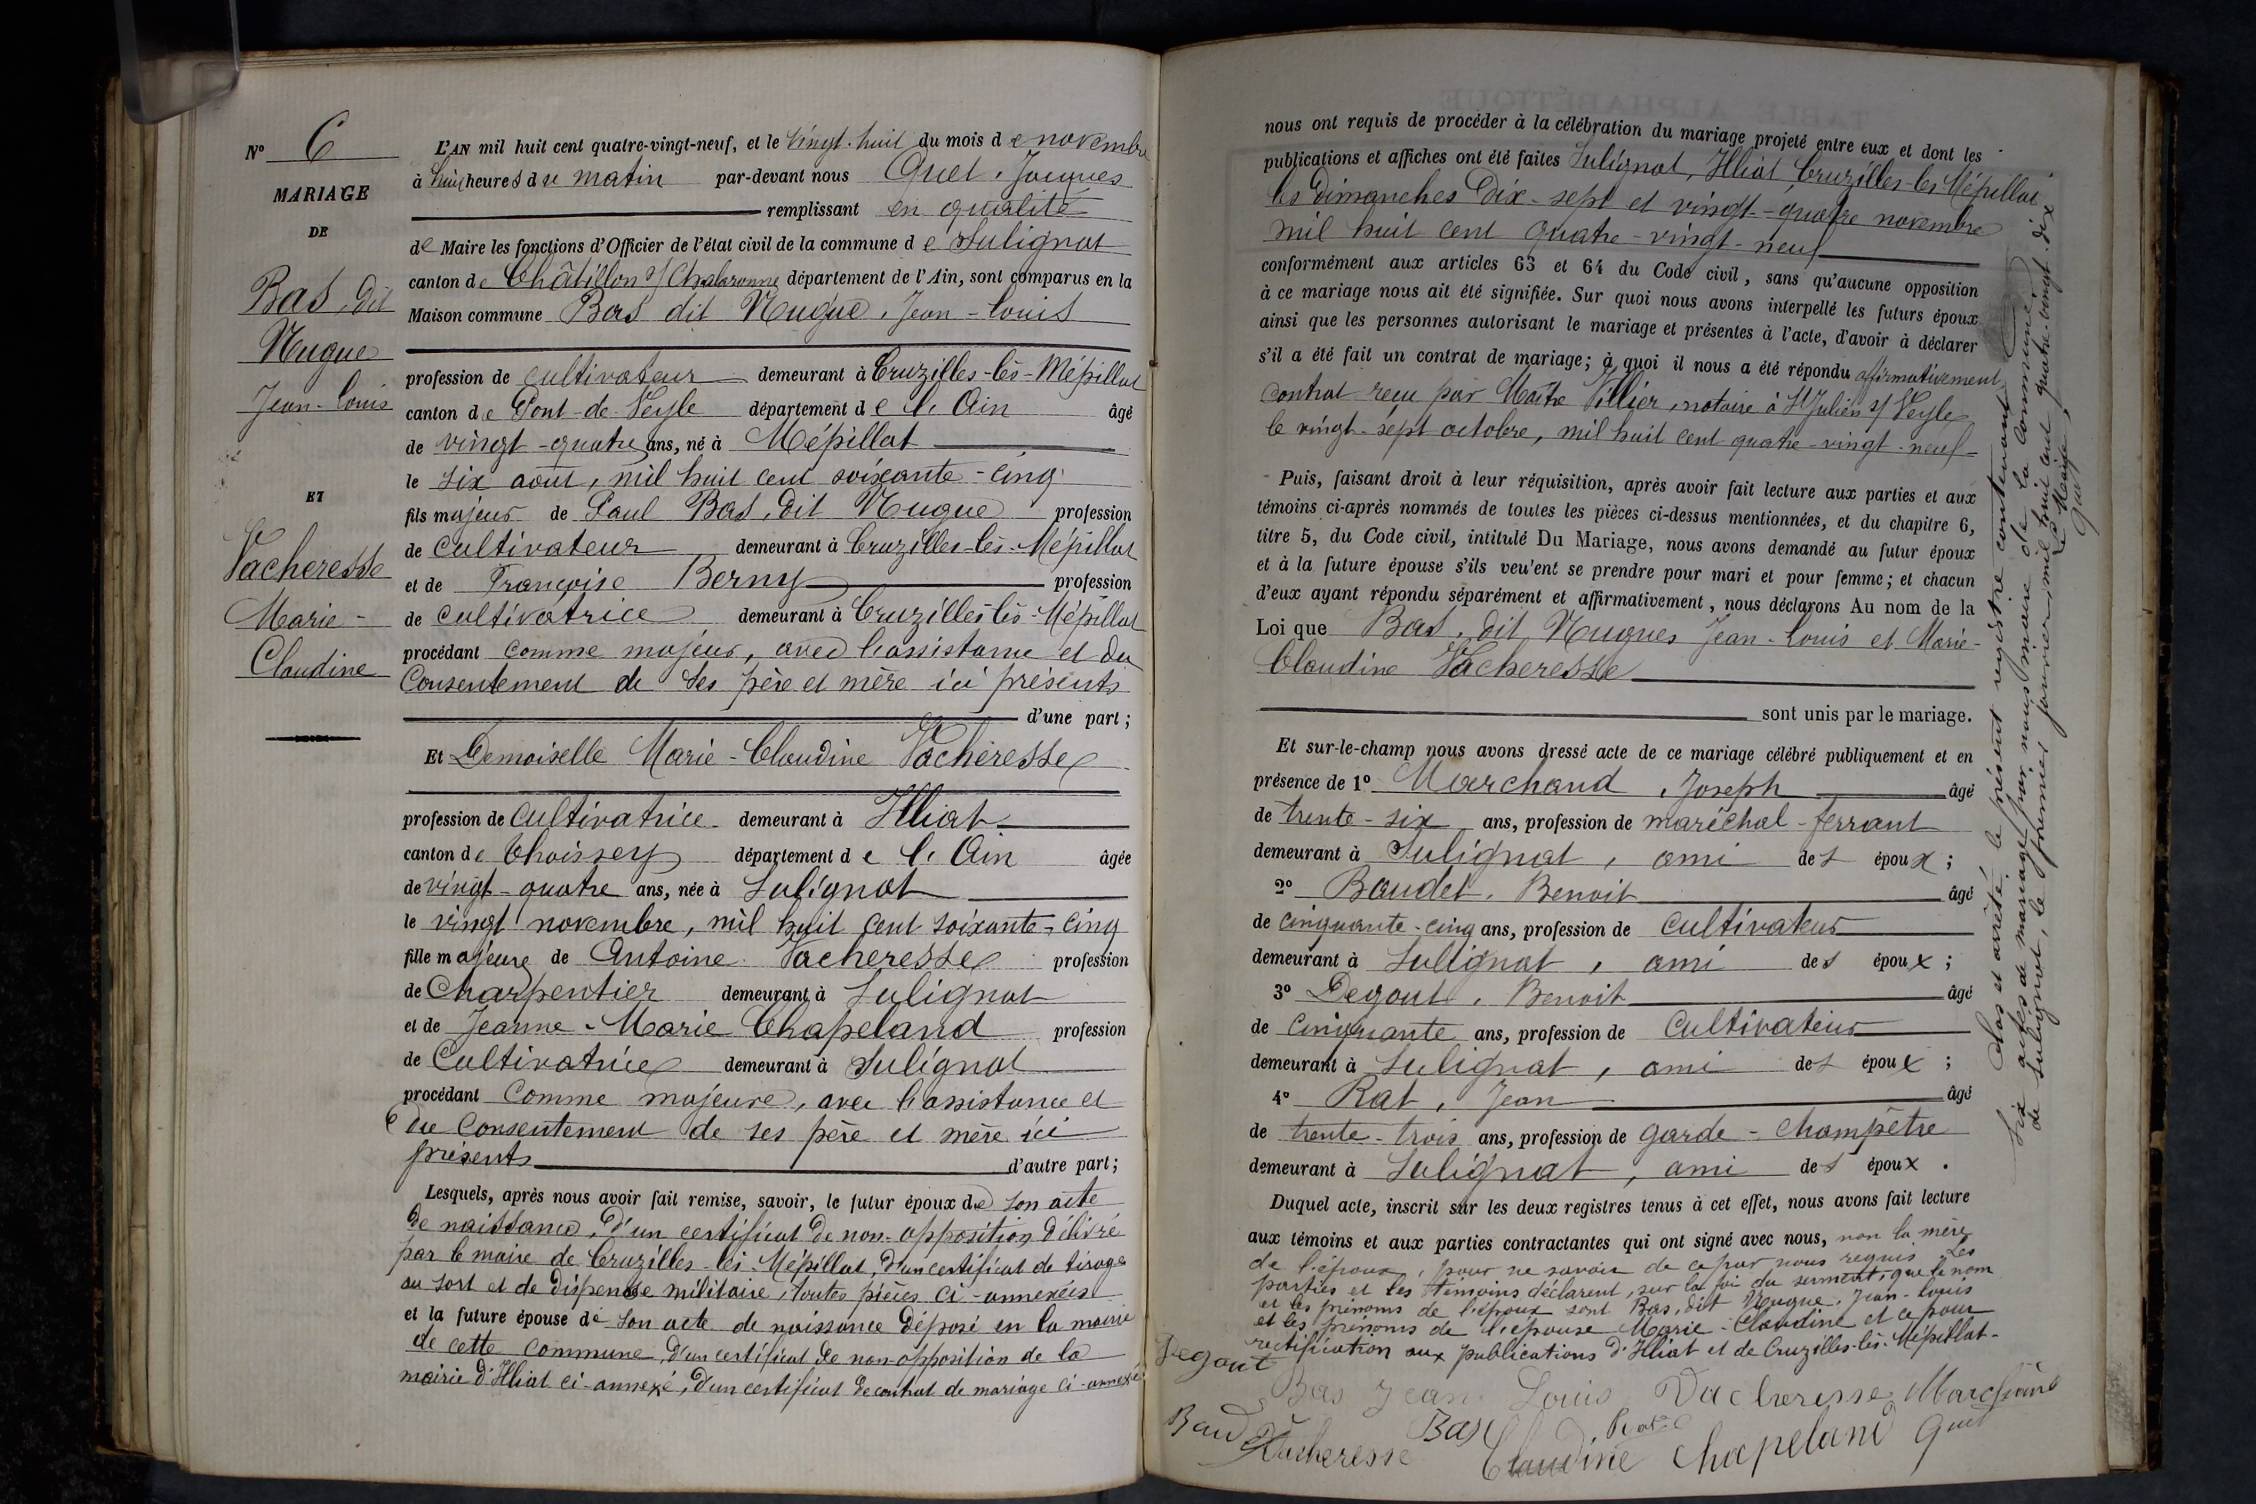 N° 6
MARIAGE
DE
Bas, dit
Nugue
Jean-Louis
ET
Vacheresse
Marie-
Claudine
L'AN mil huit cent quatre-vingt-neuf, et le vingt-huit du mois de novembre
à huit heures du matin par-devant nous Quet, Jacques
remplissant en qualité
de Maire les fonctions d'Officier de l'état civil de la commune de Sulignat
canton de Châtillon s/ Chalaronne département de l'Ain, sont comparus en la
Maison commune Bas dit Nugue, Jean-Louis
profession de cultivateur demeurant à Cruzilles-lès-Mépillat
canton de Pont-de-Veyle département de l'Ain âgé
de vingt-quatre ans, né à Mépillat
le six août, mil huit cent soixante-cinq
fils majeur de Paul Bas, dit Nugue profession
de cultivateur demeurant à Cruzilles-lès-Mépillat
et de Françoise Berny profession
de cultivatrice demeurant à Cruzilles-lès-Mépillat
procédant comme majeur, avec l'assistance et du
consentement de ses père et mère ici présents
d'une part;
Et Demoiselle Marie-Claudine Vacheresse
profession de cultivatrice demeurant à Illiat
canton de Thoissey département de l'Ain âgée
de vingt-quatre ans, née à Sulignat
le vingt novembre, mil huit cent soixante-cinq
fille majeure de Antoine Vacheresse profession
de Charpentier demeurant à Sulignat
et de Jeanne-Marie Chapeland profession
de Cultivatrice demeurant à Sulignat
procédant comme majeure, avec l'assistance et
du consentement de ses père et mère ici
présents d'autre part;
Lesquels, après nous avoir fait remise, savoir, le futur époux de son acte
de naissance, d'un certificat de non-opposition délivré
par le maire de Cruzilles-lès-Mépillat, d'un certificat de tirage
au sort et de dispense militaire, toutes pièces ci-annexées
et la future épouse de son acte de naissance déposé en la mairie
de cette commune, d'un certificat de non-opposition de la
mairie d'Illiat ci-annexé, d'un certificat de contrat de mariage ci-annexé
nous ont requis de procéder à la célébration du mariage projeté entre eux et dont les
publications et affiches ont été faites Sulignat, Illiat, Cruzilles-les-Mépillat
les dimanches dix-sept et vingt-quatre novembre
mil huit cent quatre-vingt-neuf
conformément aux articles 63 et 64 du Code civil, sans qu'aucune opposition
à ce mariage nous ait été signifiée. Sur quoi nous avons interpellé les futurs époux
ainsi que les personnes autorisant le mariage et présentes à l'acte, d'avoir à déclarer
s'il a été fait un contrat de mariage; à quoi il nous a été répondu affirmativement
contrat reçu par Maître Villier, notaire à St Julien s/ Veyle
le vingt-sept octobre, mil huit cent quatre-vingt-neuf
Puis, faisant droit à leur réquisition, après avoir fait lecture aux parties et aux
témoins ci-après nommés de toutes les pièces ci-dessus mentionnées, et du chapitre 6,
titre 5, du Code civil, intitulé Du Mariage, nous avons demandé au futur époux
et à la future épouse s'ils veu'ent se prendre pour mari et pour femme; et chacun
d'eux ayant répondu séparément et affirmativement, nous déclarons Au nom de la
Loi que Bas, dit Nugues Jean-Louis et Marie-
Claudine Vacheresse
sont unis par le mariage.
Et sur-le-champ nous avons dressé acte de ce mariage célébré publiquement et en
présence de 1° Marchand, Joseph âgé
de trente-six ans, profession de maréchal-ferrant
demeurant à Sulignat, ami des époux;
2° Baudet, Benoit âgé
de cinquante-cinq ans, profession de cultivateur
demeurant à Sulignat, ami des époux;
3° Degout, Benoit âgé
de cinquante ans, profession de cultivateur
demeurant à Sulignat, ami des époux;
4° Rat, Jean âgé
de trente-trois ans, profession de garde-champêtre
demeurant à Sulignat, ami des époux.
Duquel acte, inscrit sur les deux registres tenus à cet effet, nous avons fait lecture
aux témoins et aux parties contractantes qui ont signé avec nous, non la mère
de l'époux, pour ne savoir de ce par nous requis. Les
parties et les témoins déclarent, sur la foi du serment, que le nom
et les prénoms de l'époux sont Bas, dit Nugue, Jean-Louis
et les prénoms de l'épouse Marie-Claudine et ce pour
rectification aux publications d'Illiat et de Cruzilles-lès-Mépillat-
Degout
Bas Jean Louis Vacheresse Marchand
Baudet Bas Rat
Vacheresse Claudine Chapeland Quet
Clos et arrêté le présent registre contenant
six actes de mariage par nous maire de la commune
de Sulignat, le premier janvier mil huit cent quatre-vingt-dix
Le Maire,
Quet